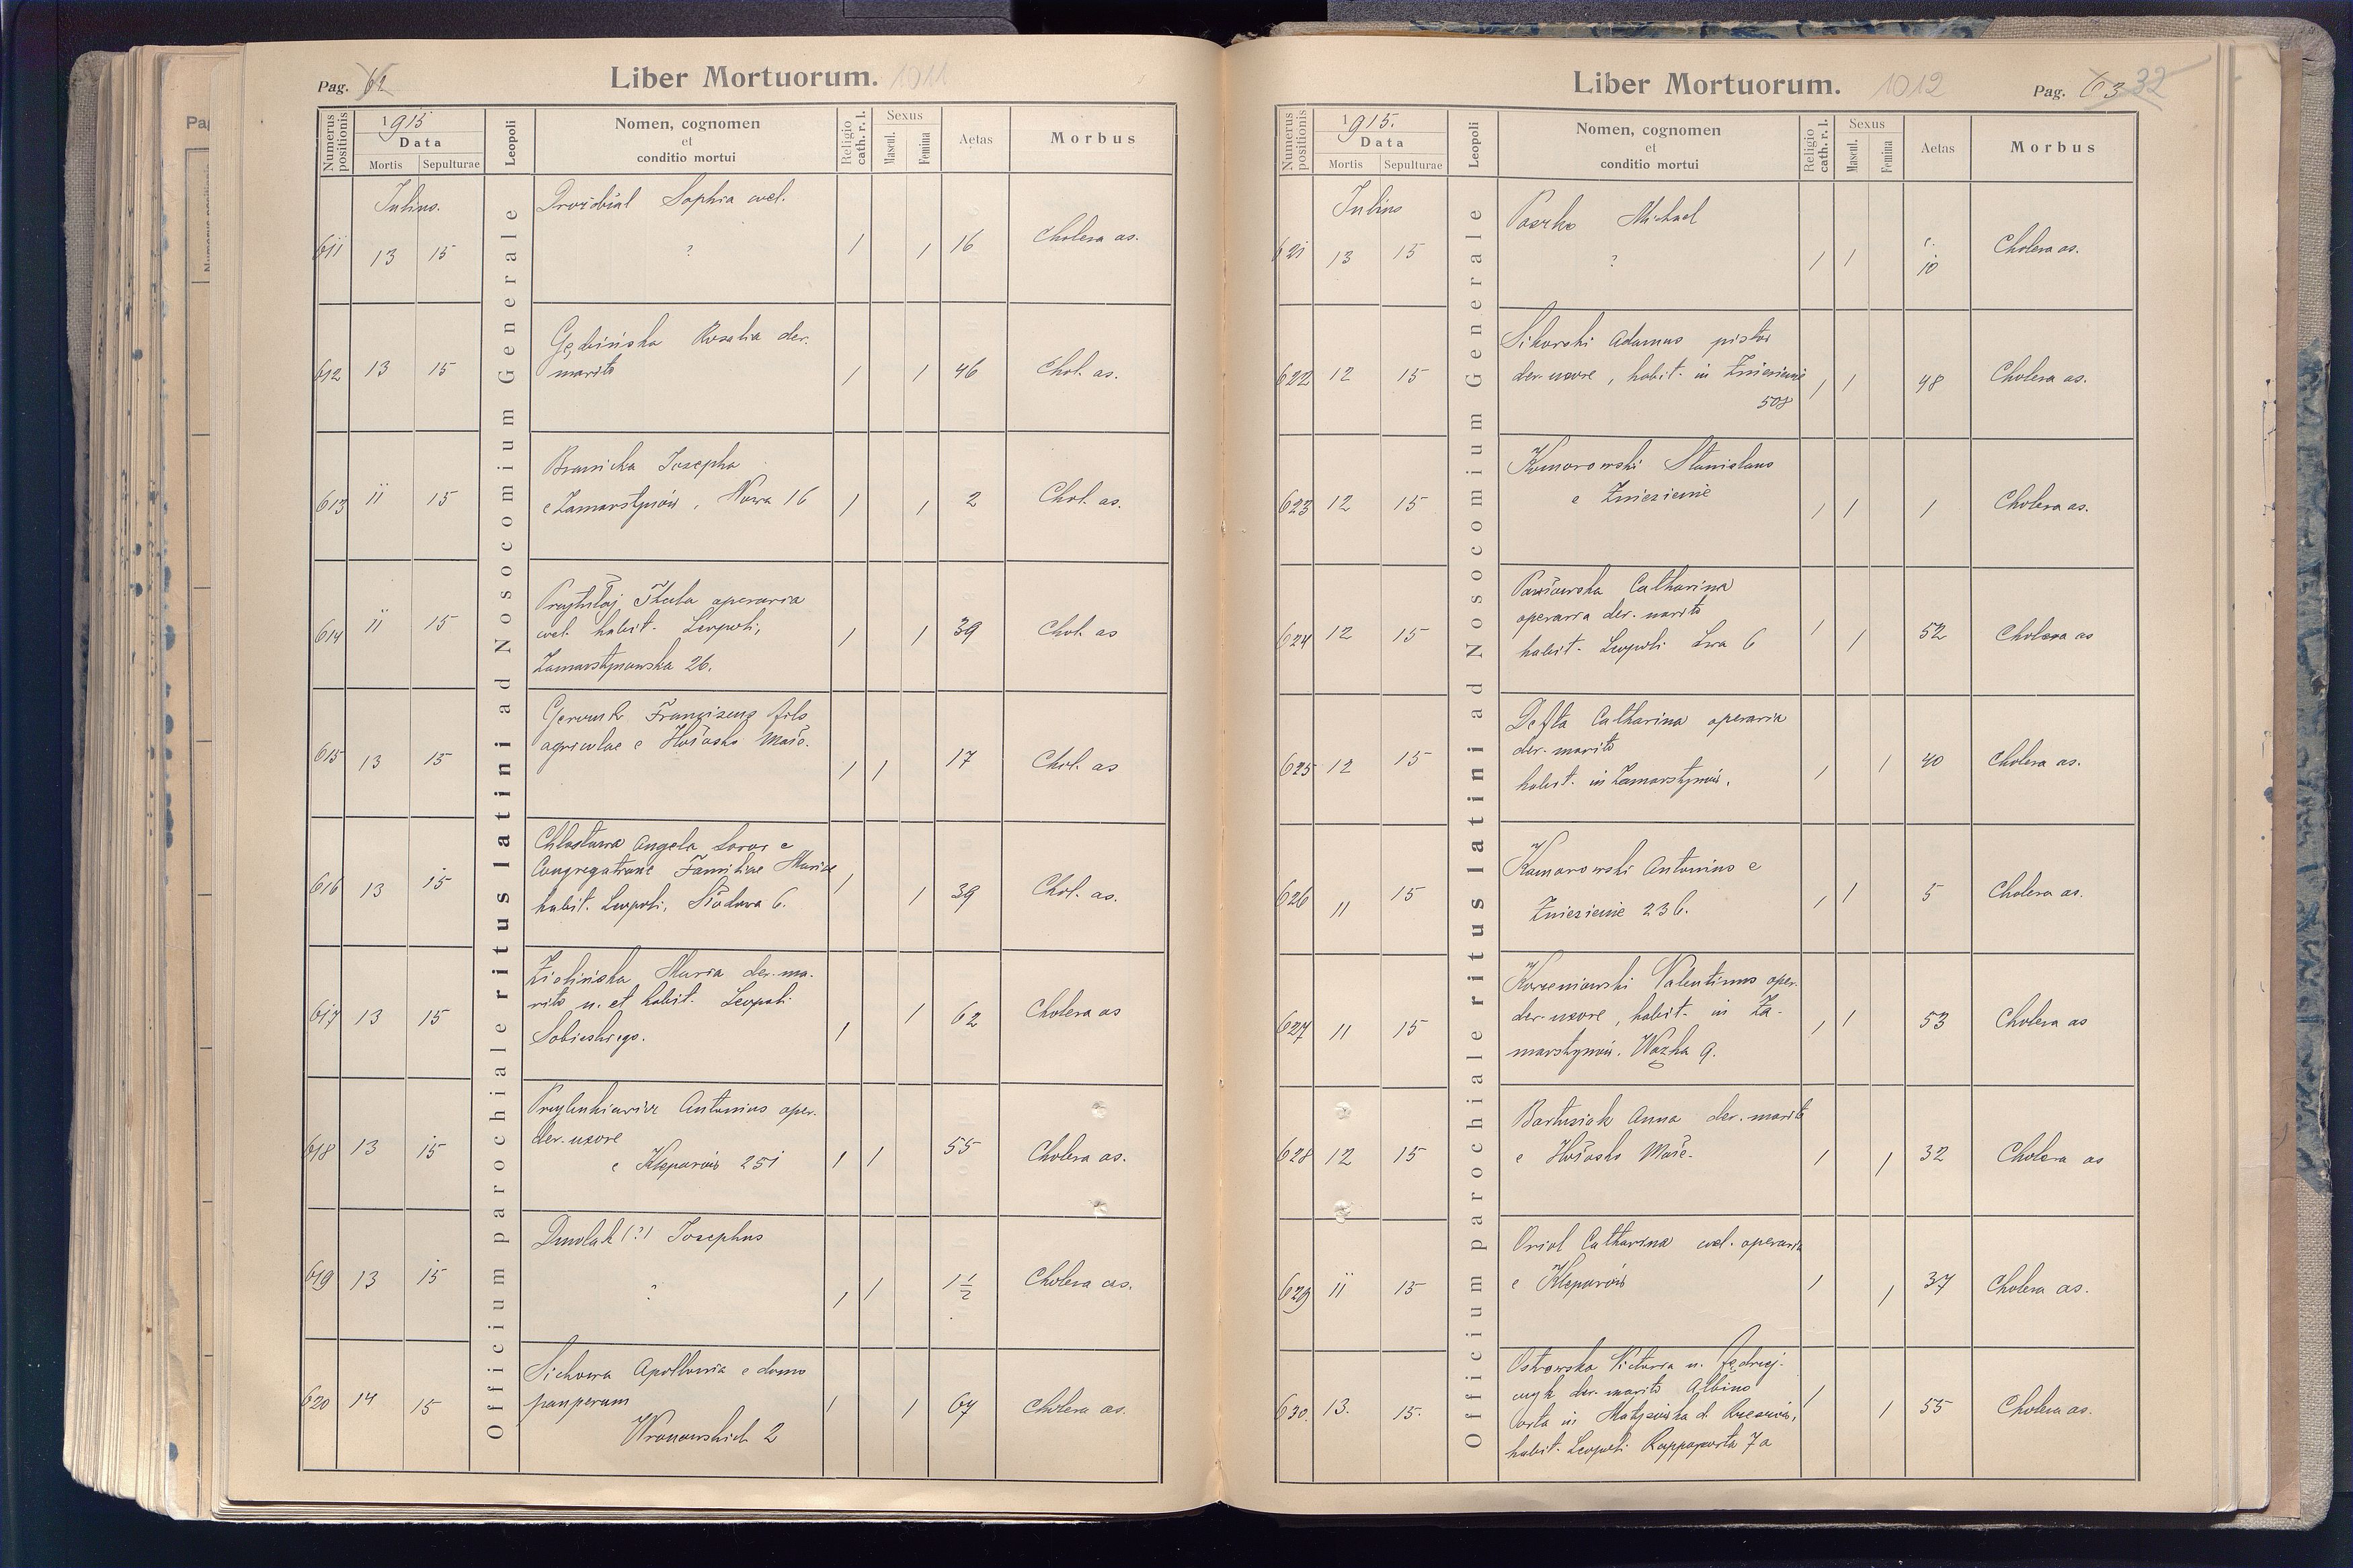 Pag. 62
Liber Mortuorum. 1011
Numerus positionis
1915
Data
Mortis Sepulturae
Leopoli
Nomen, cognomen
et
conditio mortui
Religio cath. r. l.
Sexus
Mascul. Femina
Aetas
Morbus
Officium parochiale ritus latini ad Nosocomium Generale
Julius.
611 13 15 Sophia cael. ? / / 16 Cholera as.
612 13 15 Gębińska Rosalia der.
marito / / 46 Chol. as.
613 11 15 Branicka Josepha
e Zamarstynów, Nowa 16 / / 2 Chol. as.
614 11 15 Thecla operaria
cael. habit. Leopoli,
Zamarstynowska 26. / / 39 Chol. as
615 13 15 Franciscus fils
agricolae e / / 17 Chol. as
616 13 15 Angela Soror e
Congregatione Familiae Mariae
habit. Leopoli, 6. / / 39 Chol. as.
617 13 15 Zielińska Maria der. ma-
rito n. et habit. Leopoli
Sobieskiego. / / 62 Cholera as
618 13 15 Antonius oper.
der. uxore
e Kleparów 251 / / 55 Cholera as.
619 13 15 Dmolak (?) Josephus
? / / 1 1/2 Cholera as.
620 14 15 Sichowa Apollonia e domo
pauperum
Wronowskich 2 / / 67 Cholera as.
Liber Mortuorum. 1012
Pag. 63 32
Numerus positionis
1915.
Data
Mortis Sepulturae
Leopoli
Nomen, cognomen
et
conditio mortui
Religio cath. r. l.
Sexus
Mascul. Femina
Aetas
Morbus
Officium parochiale ritus latini ad Nosocomium Generale
Julius
621 13 15 Michael
? / / c. 10 Cholera as.
622 12 15 Sikorski Adamus pistor
der. uxore, habit. in Zniesienie
508 / / 48 Cholera as.
623 12 15 Komorowski Stanislaus
e Zniesienie / / 1 Cholera as.
624 12 15 Catharina
operaria der. marito
habit. Leopoli Lwa 6 / / 52 Cholera as
625 12 15 Catharina operaria
der. marito
habit. in Zamarstynów. / / 40 Cholera as.
626 11 15 Komorowski Antonius e
Zniesienie 236. / / 5 Cholera as.
627 11 15 Korzeniowski Valentinus oper.
der. uxore, habit. in Za-
marstynów. Wązka 9. / / 53 Cholera as
628 12 15 Bartusiak Anna der. marito
e / / 32 Cholera as
629 11 15 Oriol Catharina cael. operaria
e Kleparów / / 37 Cholera as.
630. 13. 15. Ostrowska Victoria n. Jędrzej-
czyk der. marito Albino
orta in d. Rzeszów,
habit. Leopoli Rappaporta 7a / / 55 Cholera as.